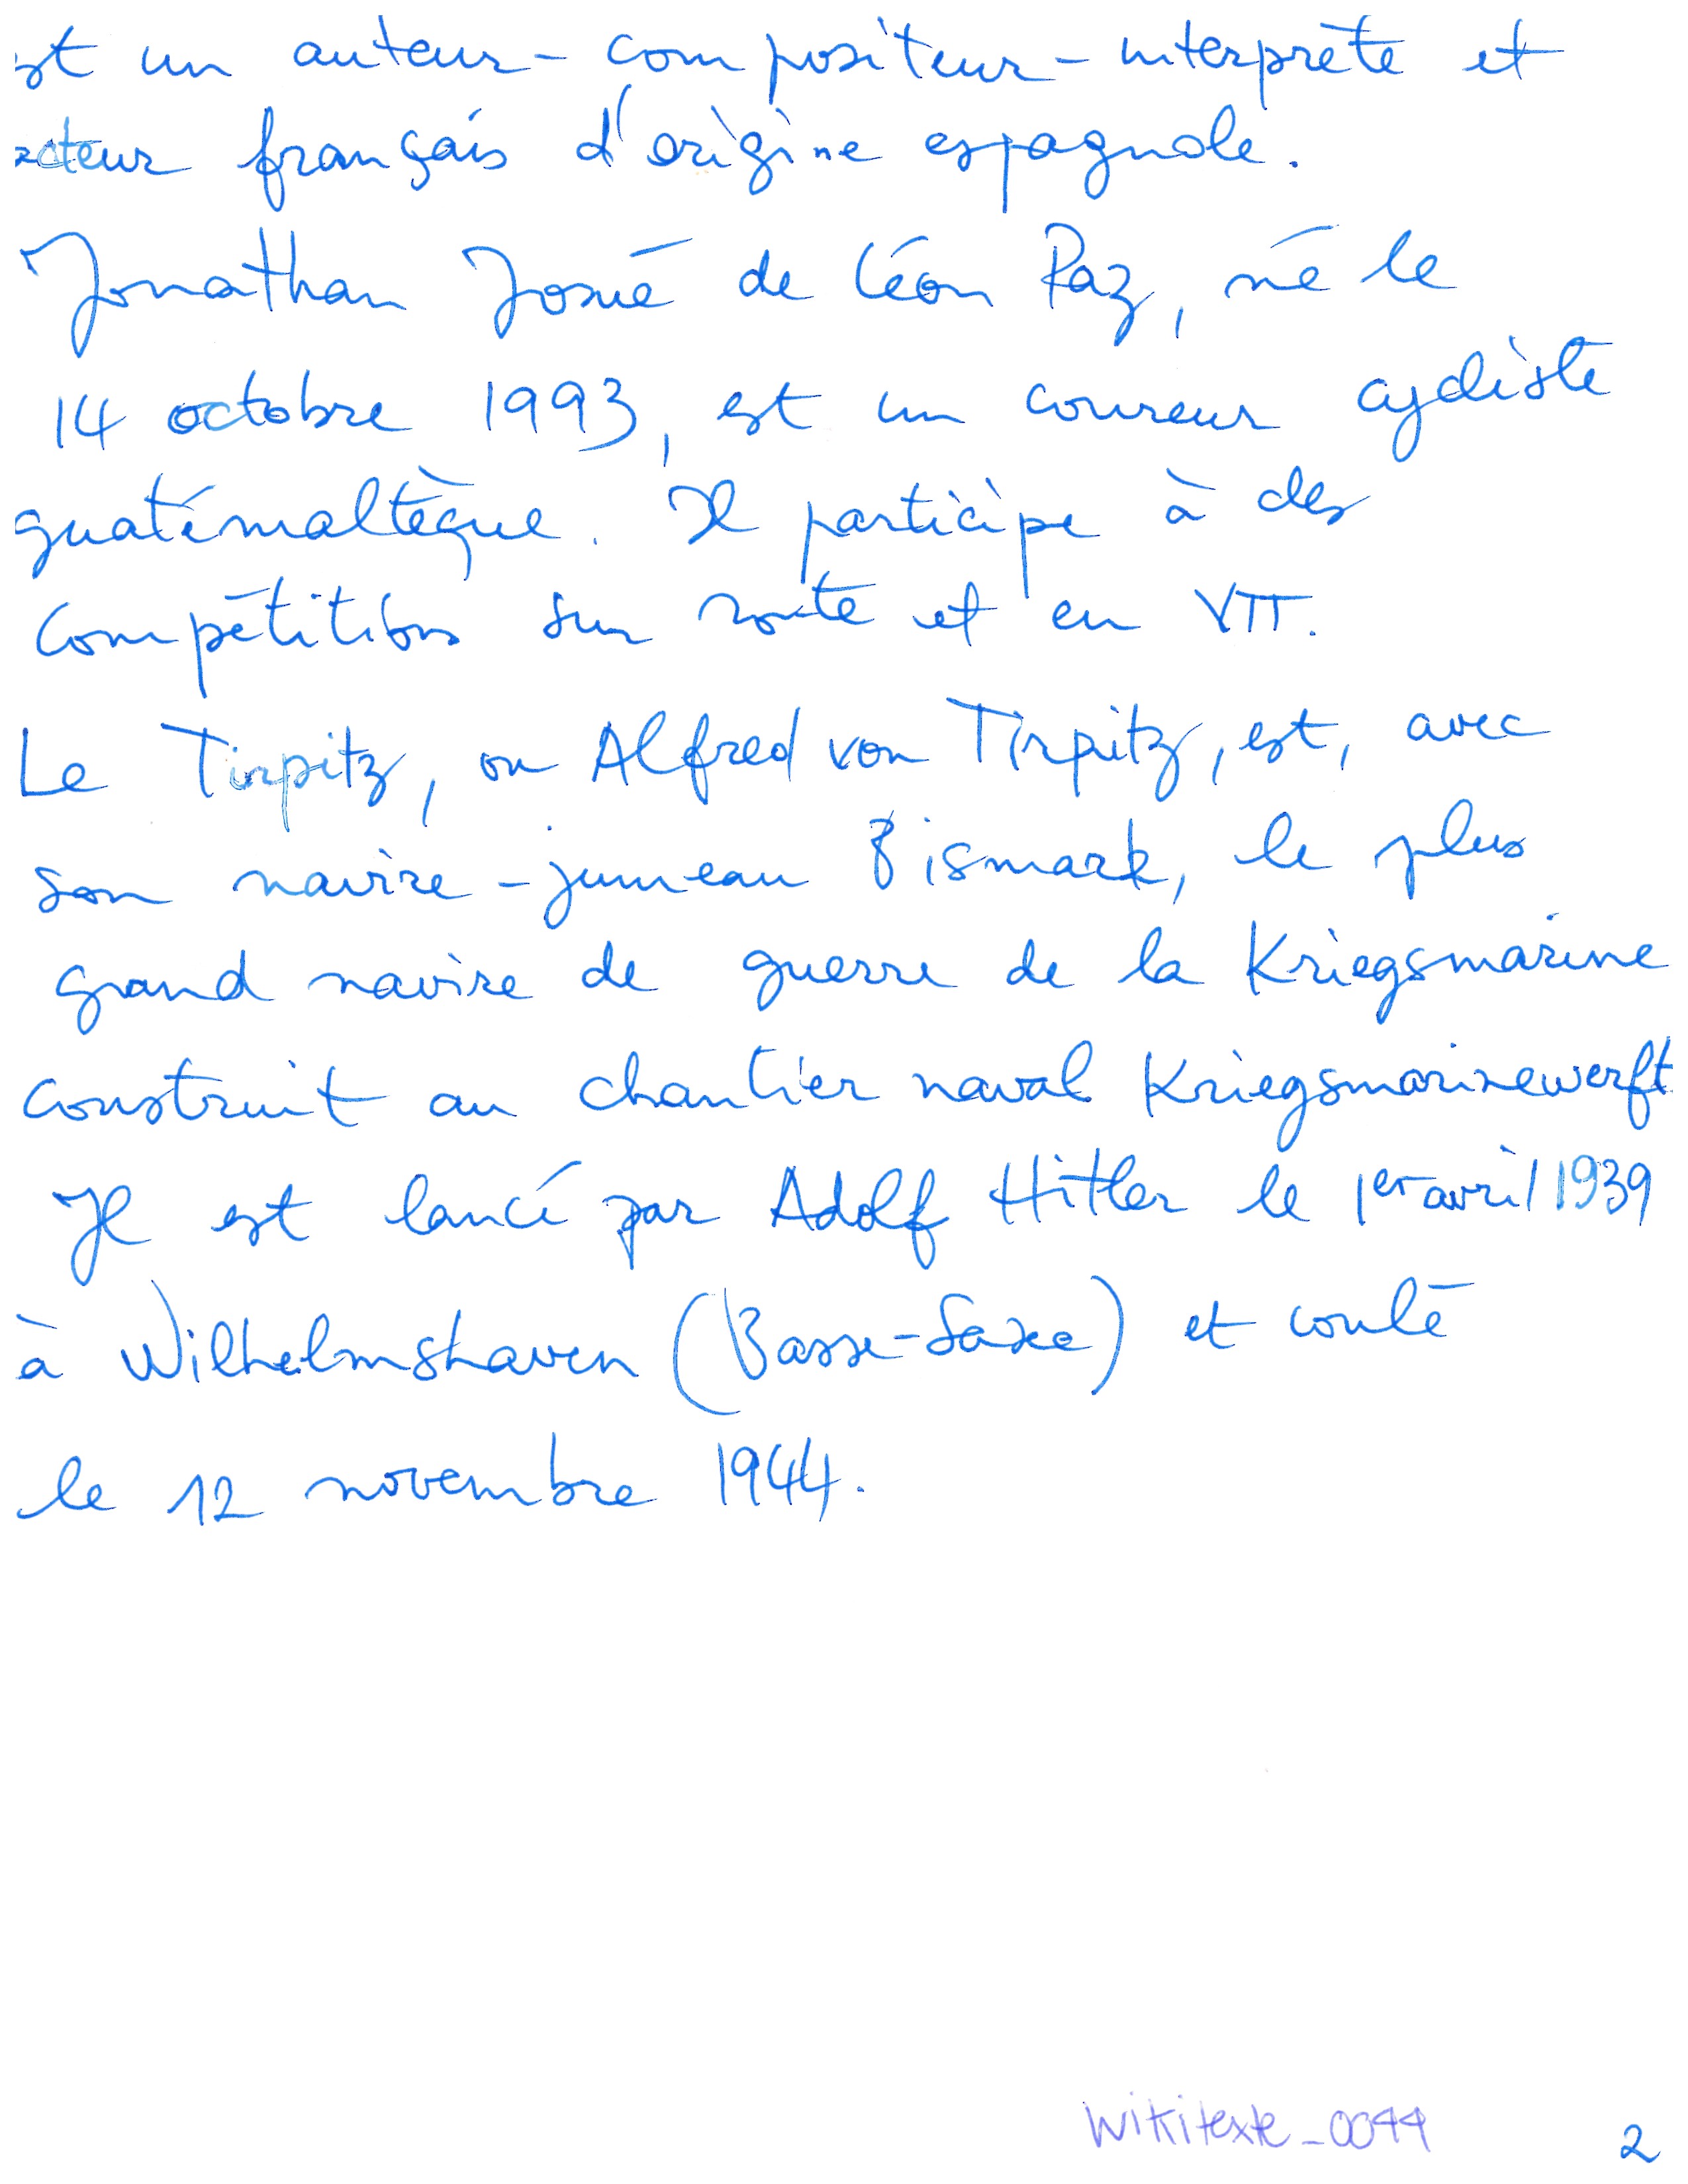 est un auteur-compositeur-interprète et
acteur français d'origine espagnole.
Jonathan Josué de Léon Paz, né le
14 octobre 1993, est un coureur cycliste
guatémaltèque. Il participe à des
compétitions sur route et en VTT.
Le Tirpitz, ou Alfred von Tirpitz, est, avec
son navire-jumeau Bismark, le plus
grand navire de guerre de la Kriegsmarine
construit au chantier naval Kriegsmarinewerft.
Il est lancé par Adolf Hitler le 1er avril 1939
à Wilhelmshaven (Basse-Saxe) et coulé
le 12 novembre 1944.
Wikitexte_0044
2